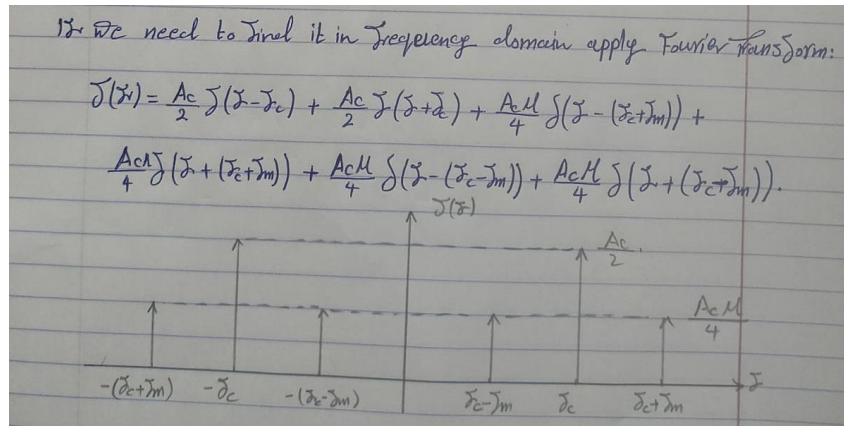 If we need to find it in frequency domain apply Fourier Transform:
f(f) = Ac/2 δ(f-fc) + Ac/2 δ(f+fc) + AcM/4 δ(f-(fc+fm)) +
AcM/4 δ(f+(fc+fm)) + AcM/4 δ(f-(fc-fm)) + AcM/4 δ(f+(fc-fm)).
f(f)
Ac/2.
AcM/4
-(fc+fm) -fc -(fc-fm) fc-fm fc fc+fm f